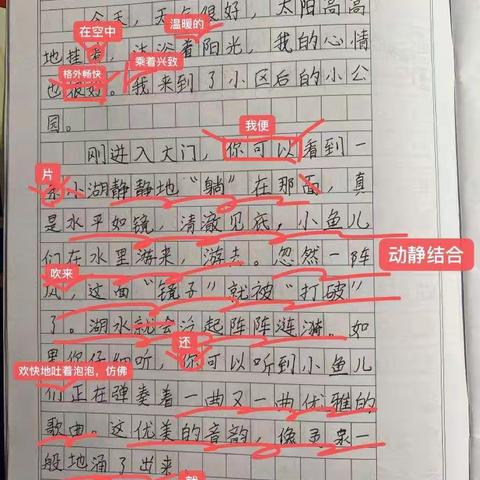 今天，天气很好，太阳高高
在空中
温暖的
地挂着，沐浴着阳光，我的心情
格外畅快
乘着兴致
也很好。我来到了小区后的小公
园。
我便
刚进入大门，你可以看到一
片
小湖静静地“躺”在那面，真
是水平如镜，清澈见底，小鱼儿
们在水里游来，游去。忽然一阵
动静结合
吹来
风，这面“镜子”就被“打破”
了。湖水就会泛起阵阵涟漪。如
还
果你仔细听，你可以听到小鱼儿
欢快地吐着泡泡，仿佛
们正在弹奏着一曲又一曲优雅的
歌曲。这优美的音韵，像
一
般地涌了出来
就